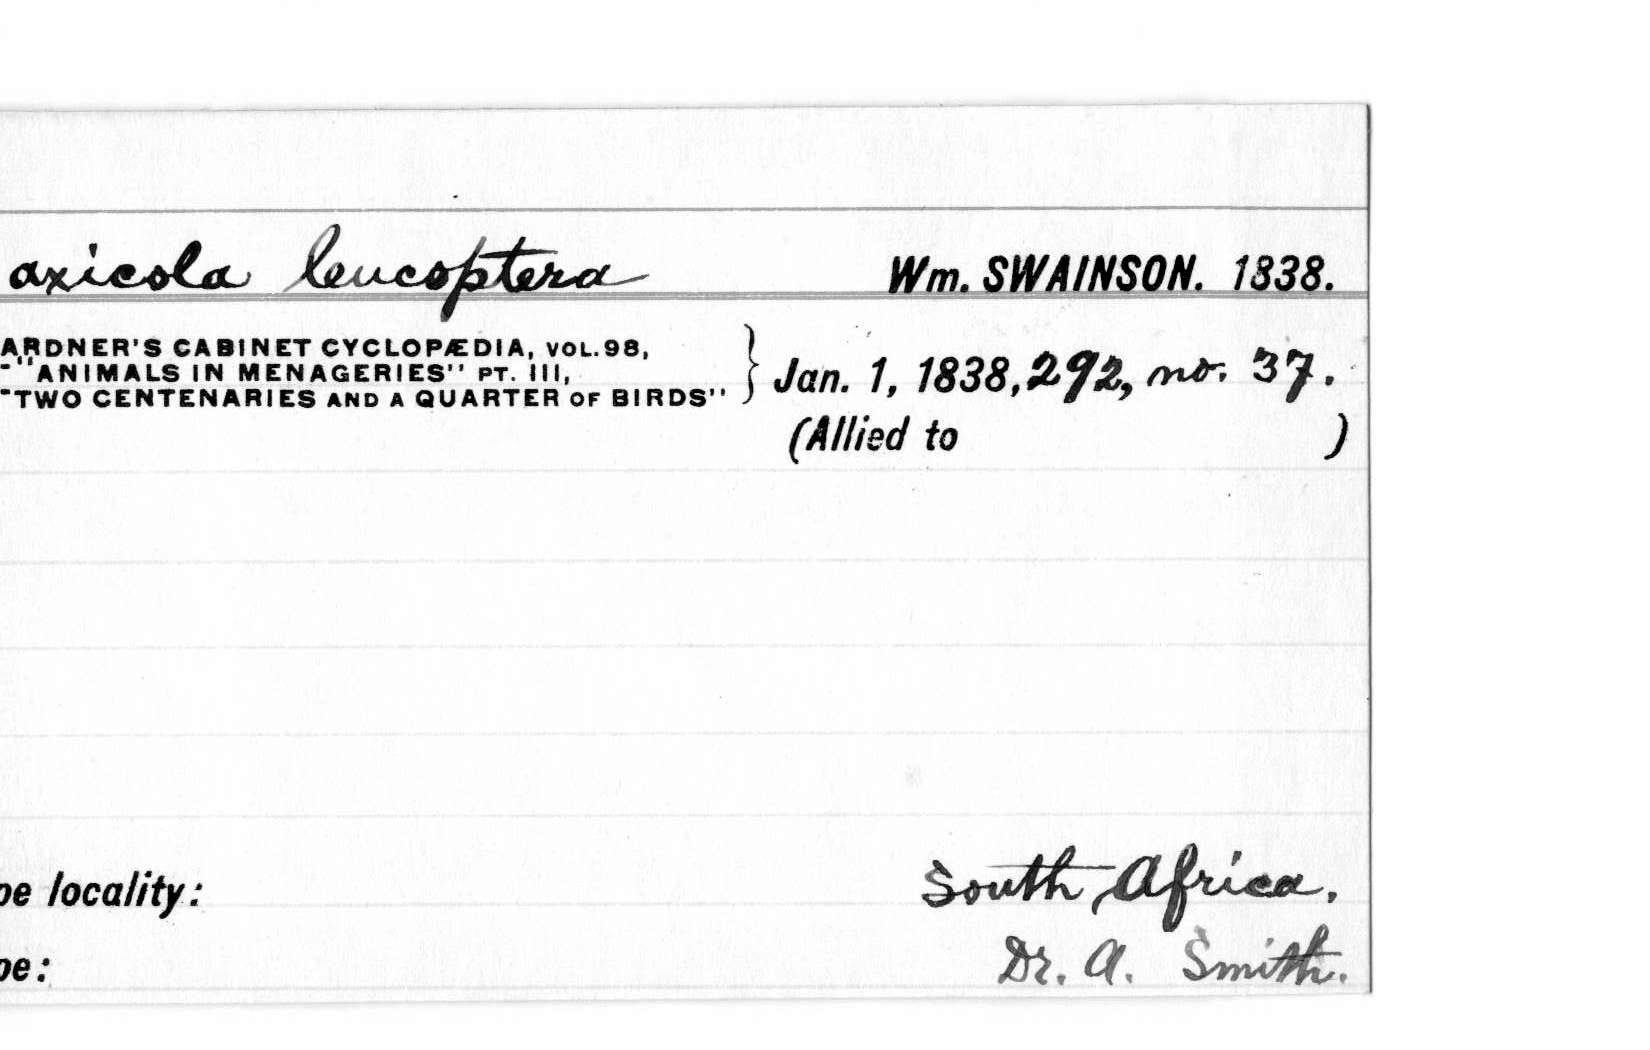 axicola leucoptera Wm. SWAINSON. 1838.
ARDNER'S CABINET CYCLOPÆDIA, VOL.98,
-"ANIMALS IN MENAGERIES" PT. III,
-"TWO CENTENARIES AND A QUARTER OF BIRDS" } Jan. 1, 1838, 292, no. 37.
(Allied to )
pe locality: South Africa.
pe: Dr. A. Smith.